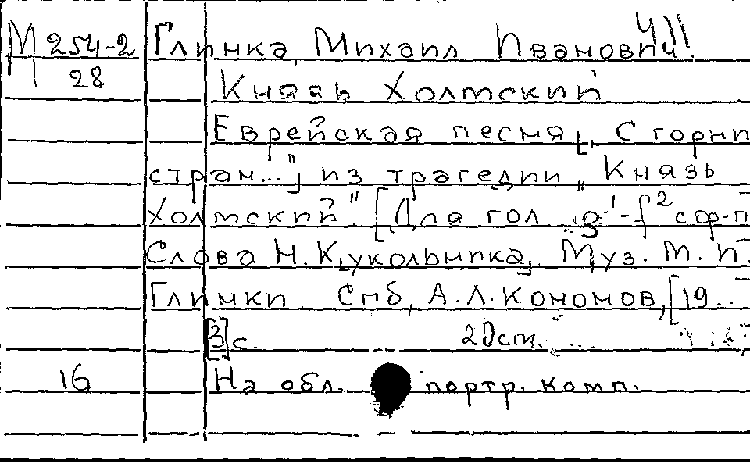 М 254-2 Глинка, Михаил Иванович.
28 Князь Холмский
Еврейская песня [„С горних
стран..."] из трагедии „Князь
Холмский" [Для гол.
Слова Н. Кукольника. Муз. М. И.
Глинки Спб, А.Л. Кономов, [19..
[3] с. 20 см.
16 На обл. портр. комп.